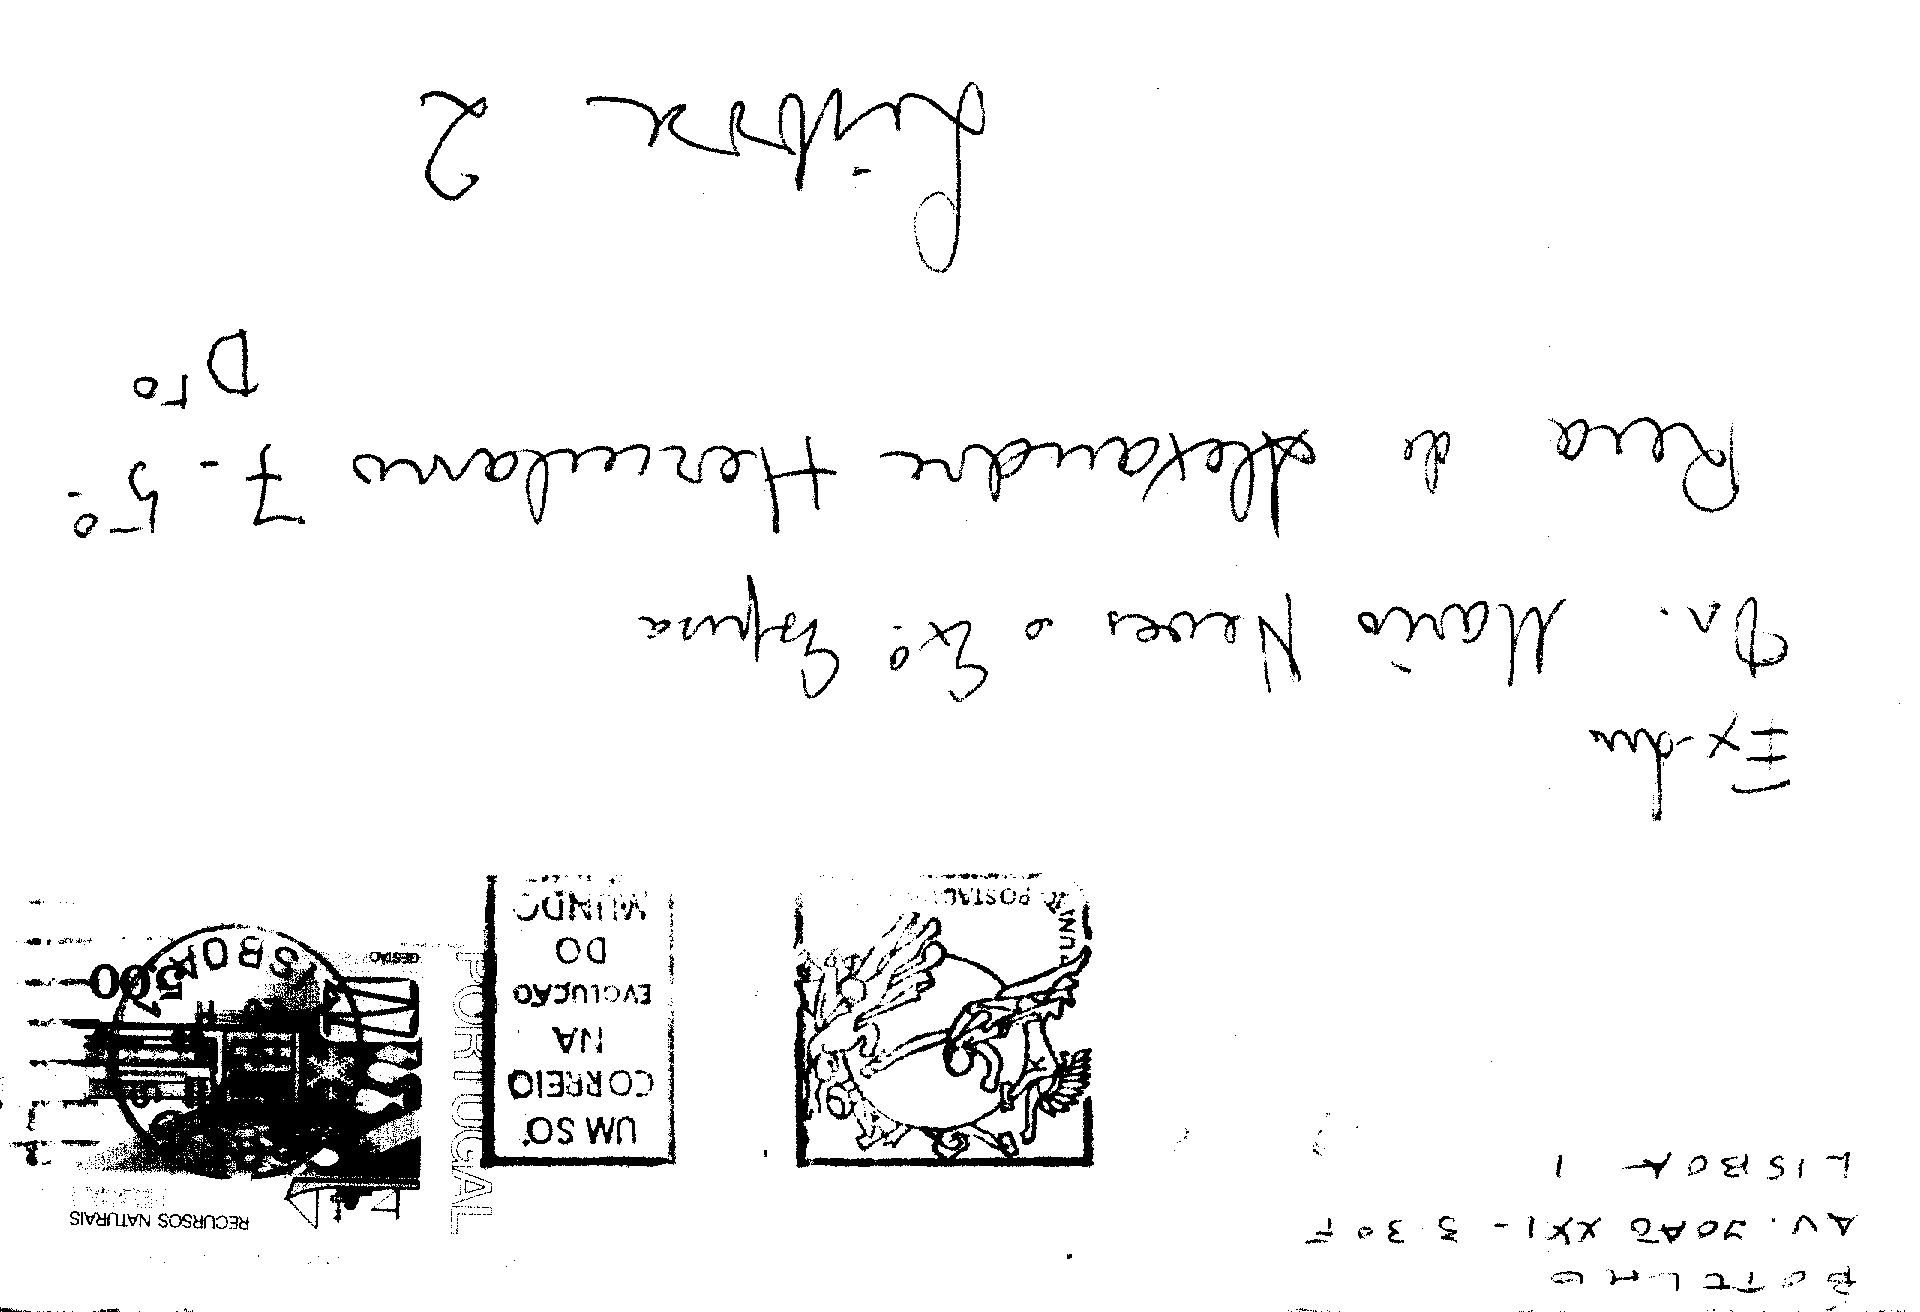 BOTELHO
AV. JOÃO XXI - 3 3º F
LISBOA 1
POSTAL
UM SÓ
CORREIO
NA
EVOLUÇÃO
DO
MUNDO
PORTUGAL
RECURSOS NATURAIS
GESTÃO
500
LISBOA
Dr. Mário Neves e Exª. Esposa
Rua de Alexandre Herculano 7 - 5º.
Dto
Lisboa 2